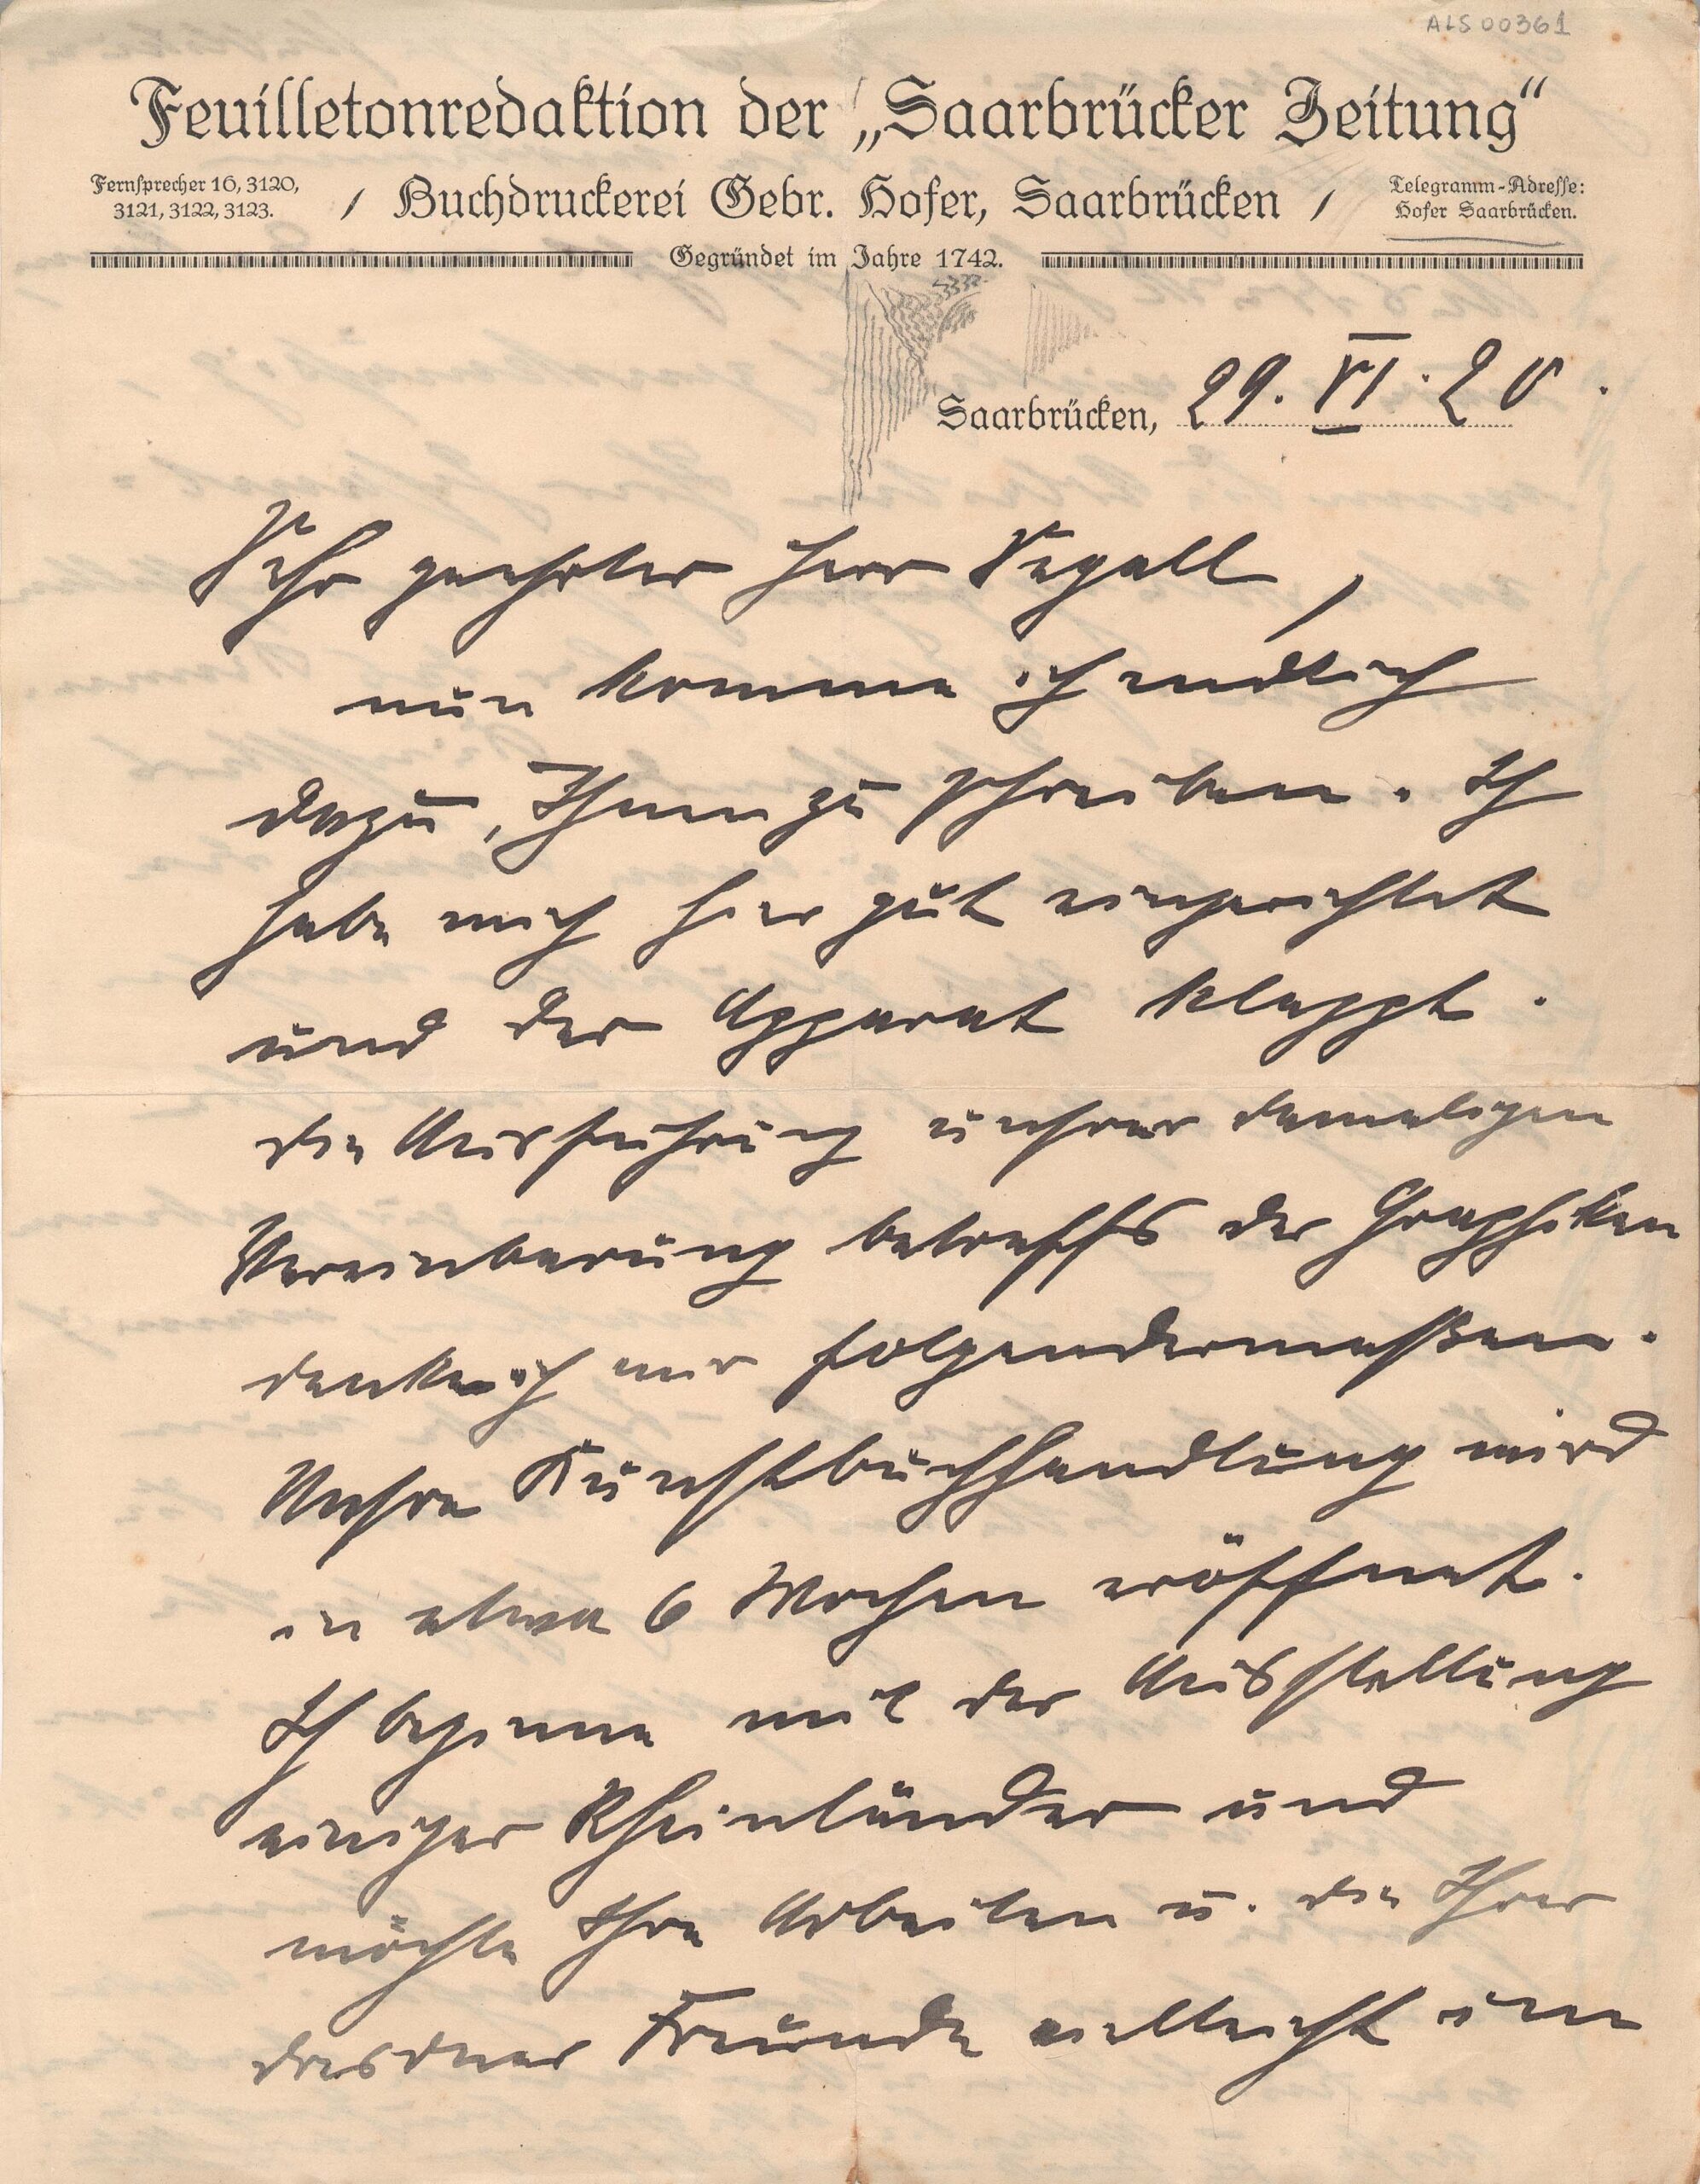 ALS 00361
Feuilletonredaktion der „Saarbrücker Zeitung“
Fernsprecher 16, 3120,
3121, 3122, 3123.
Buchdruckerei Gebr. Hofer, Saarbrücken
Telegramm-Adresse:
Hofer Saarbrücken.
Gegründet im Jahre 1742.
Saarbrücken, 29. VI. 20.
Sehr geehrter Herr Segall,
nun komme ich endlich
dazu, Ihnen zu schreiben. Ich
habe mich hier gut eingerichtet
und der Apparat klappt.
die Ausführung unsrer damaligen
Vereinbarung betreffs der Graphiken
denke ich mir folgendermaßen.
Unsre Kunstbuchhandlung wird
in etwa 6 Wochen eröffnet.
Ich beginne mit der Ausstellung
einiger Rheinländer und
möchte Ihre Arbeiten u. die Ihrer
dresdner Freunde vielleicht im